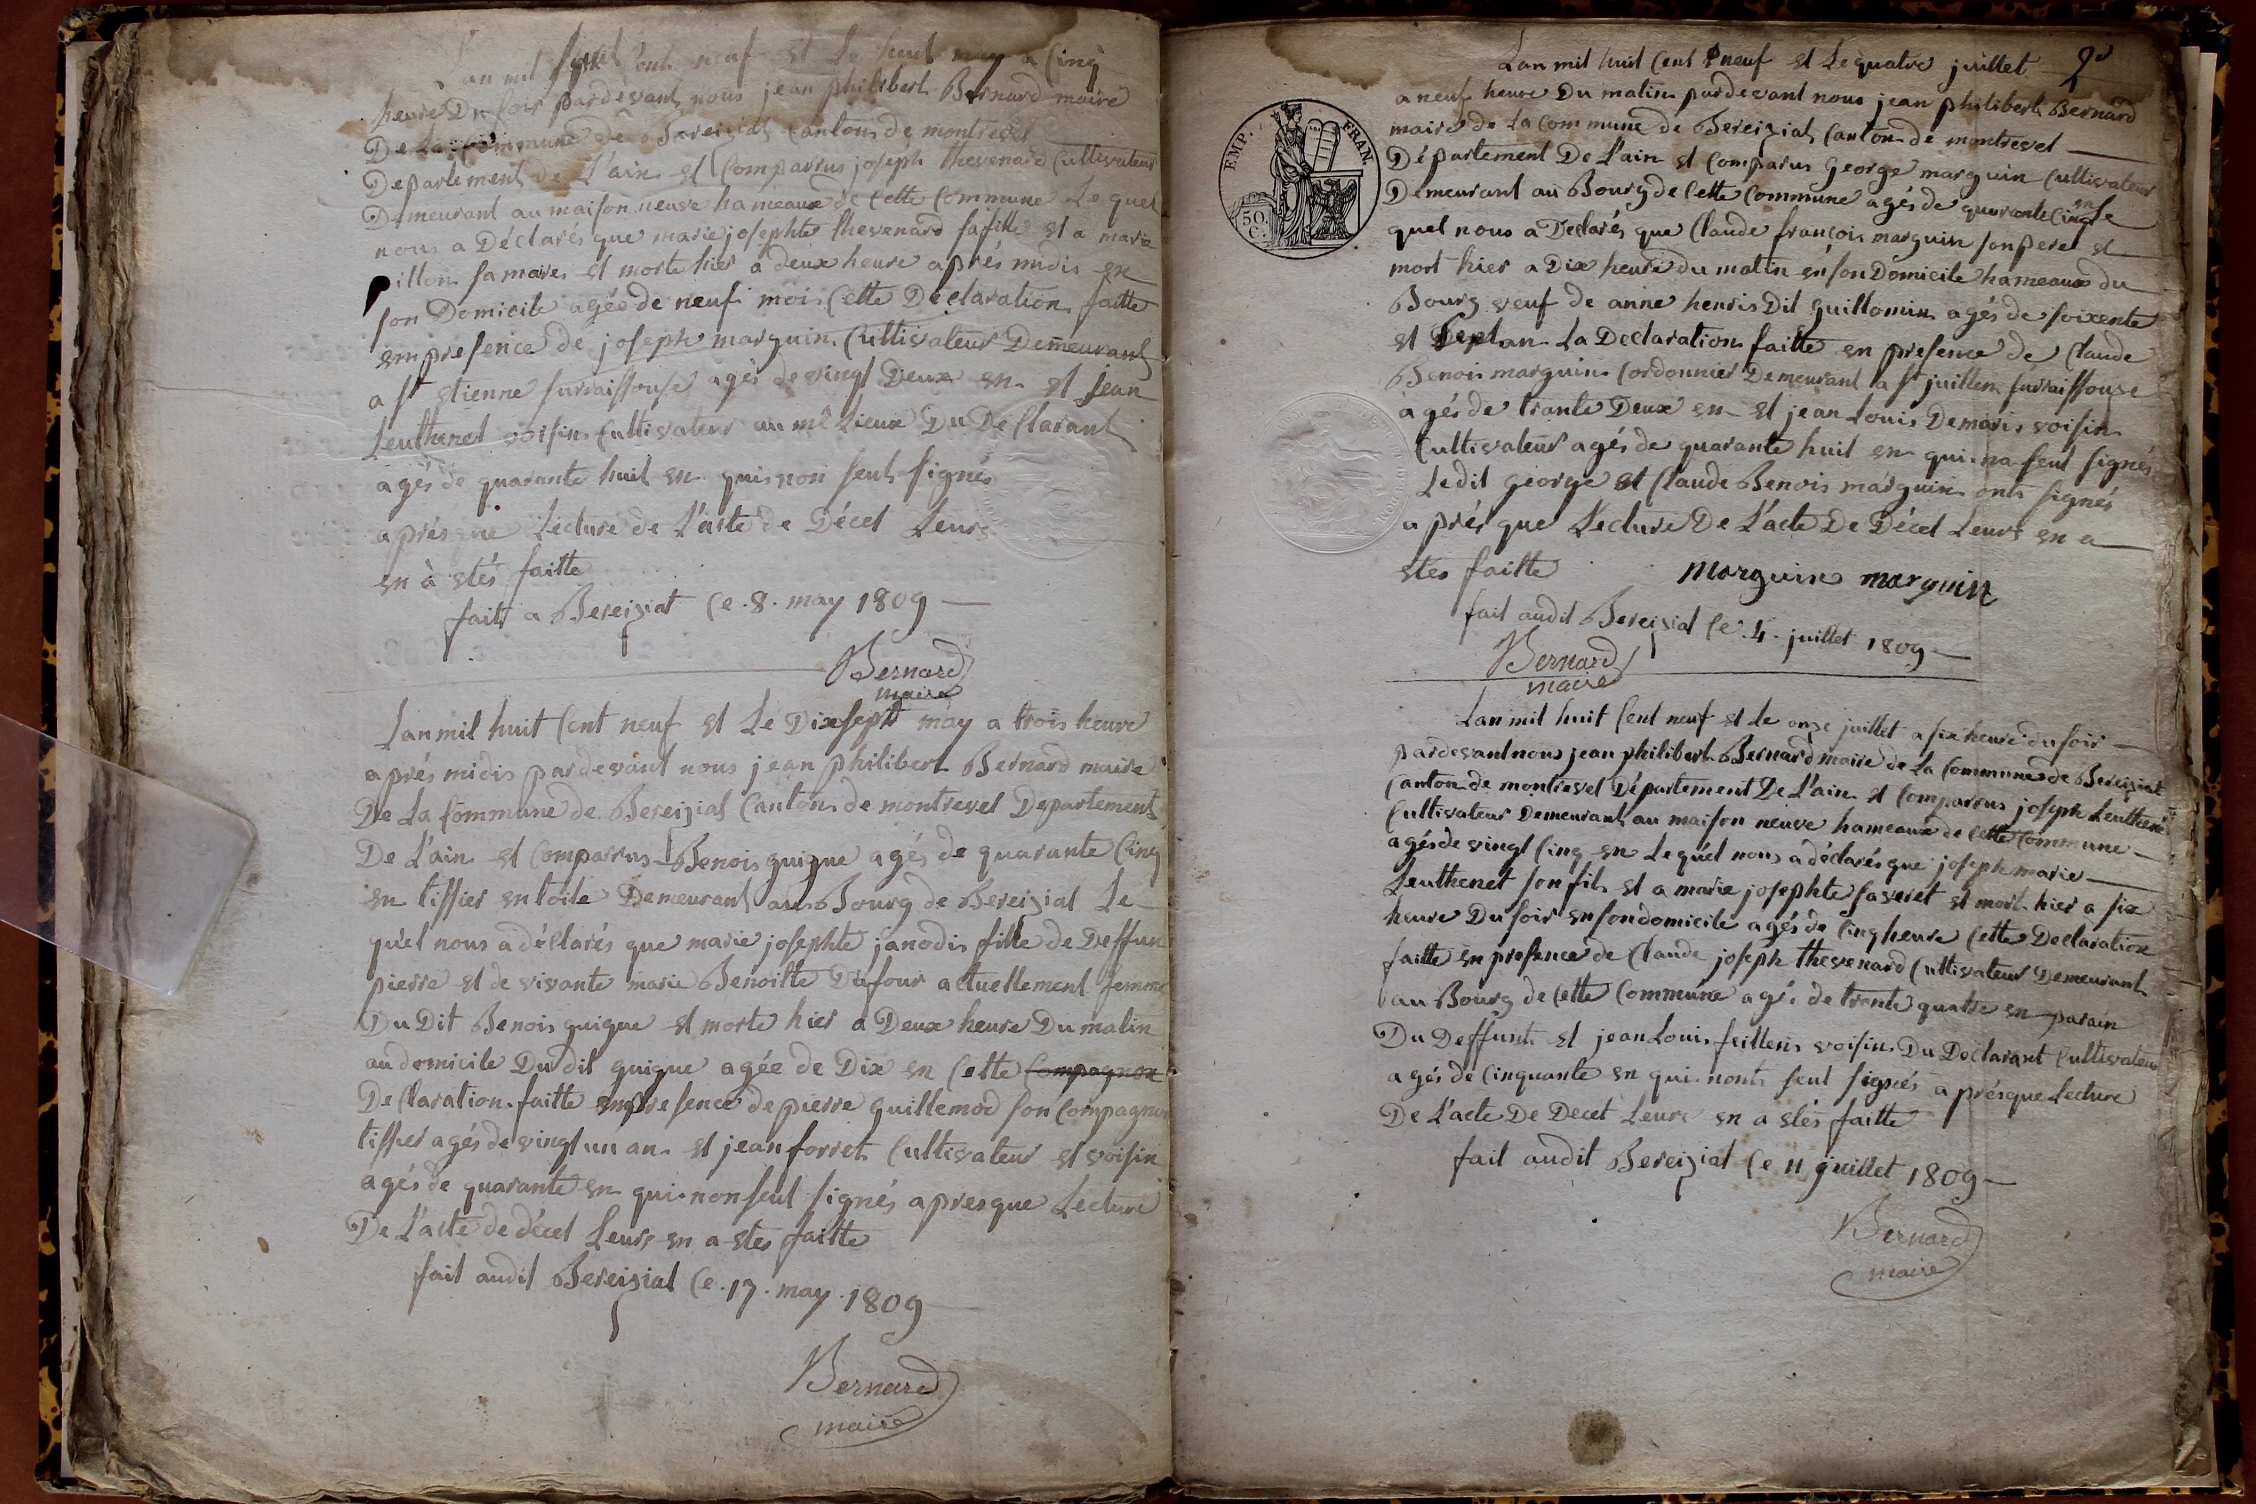 Lan mil huit Cent neuf et Le huit may a Cinq
heure Du soir pardevant nous jean philibert Bernard maire
De La Commune de Bereiziat Canton de montrevel
Département de L'ain et Comparrus joseph thevenard Cultivateur
Demeurant au maison neuve hameaux de Cette Commune Le quel
nous a Déclarés que marie josephte thevenard sa fille et a marie
pillon sa maire et morte hier a deux heure aprés midis en
son Domicile agée de neuf mois Cette Déclaration faitte
en presence de joseph marguin Cultivateur Demeurant
a St etienne surraissouse agés de vingt Deux en et jean
Leuthenet voisin Cultivateur au mê Lieux Du Déclarant
agés de quarante huit en qui non seut signés
aprés que Lecture de L'acte de Décet Leurs
en à etés faitte
fait a Bereiziat Ce .8. may 1809
Bernard
maire
Lan mil huit Cent neuf et Le Dixsept may a trois heure
aprés midis pardevant nous jean philibert Bernard maire
De La Commune de Bereiziat Canton de montrevel Departement
De L'ain et Comparrus Benois guigue agés de quarante Cinq
en tissier en toile Demeurant au Bourg de Bereiziat Le
quel nous a déclarés que marie josephte janodis fille de Deffun
pierre et de vivante marie Benoitte Dufour actuellement femme
Du Dit Benois guigue et morte hier a Deux heure Du matin
au domicile Du dit guigue agée de Dix en Cette Compagnon
Declaration faitte en presence de pierre guillemod son Compagnon
tissier agés de vingt un an et jean forret Cultivateur et voisin
agés de quarante en qui non seut signés apres que Lecture
De L'acte de décet Leurs en a etés faitte
fait audit Bereiziat Ce .17. may .1809
Bernard
maire
2d
Lan mil huit Cent neuf et Le quatre juillet
a neuf heure Du matin pardevant nous jean philibert Bernard
maire de La Commune de Bereiziat Canton de montrevel
Département De L'ain et Comparus George marguin Cultivateur
Demeurant au Bourg de Cette Commune agés de quarante Cinq en Le
quel nous a Declarés que Claude françois marguin son pere et
mort hier a Dix heure du matin en son Domicile hameaux du
Bourg veuf de anne henris Dit guillomin agés de soixente
et Sept an La Declaration faitte en presence de Claude
Benois marguin Cordonnier Demeurant a St juillen surraissouse
agés de trante Deux en et jean Louis Demaris voisin
Cultivateur agés de quarante huit en qui na seut signés
Ledit George et Claude Benois marguin onts signés
aprés que Lecture De L'acte De Décet Leurs en a
etés faitte
Marguin marguin
fait audit Bereiziat Ce .4. juillet 1809
Bernard
maire
Lan mil huit Cent neuf et Le onze juillet a six heure du soir
pardevant nous jean philibert Bernard maire de La Commune de Bereiziat
Canton de montrevel Département De L'ain et Comparrus joseph Leuthenet
Cultivateur Demeurant au maison neuve hameaux de Cette Commune
agés de vingt Cinq en Le quel nous a déclarés que joseph marie
Leuthenet son fils et a marie josephte saveret et mort hier a six
heure Du soir en son domicile agés de Cinq heure Cette Declaration
faitte en presence de Claude joseph thevenard Cultivateur Demeurant
au Bourg de Cette Commune agés de trante quatre en parain
Du Deffunt et jean Louis feillens voisin Du Declarant Cultivateur
agés de Cinquante en qui nonts seut signés aprés que Lecture
De L'acte De Decet Leurs en a etés faitte
fait audit Bereiziat Ce 11 juillet 1809
Bernard
maire
EMP. FRAN.
50 C.